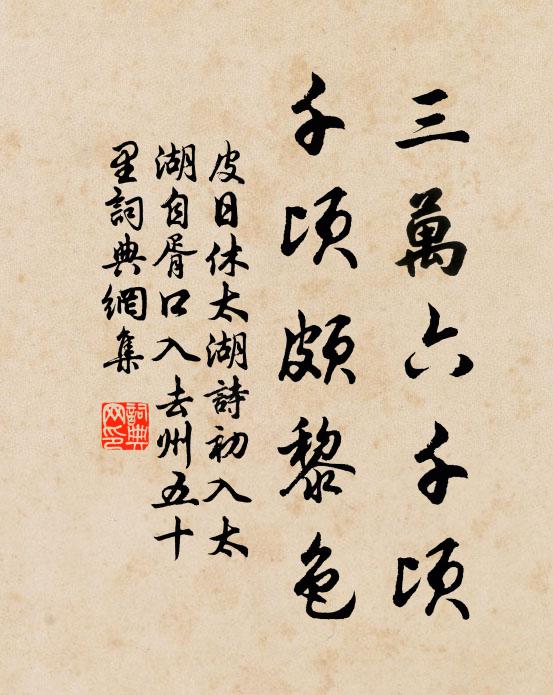 三萬六千頃
千頃頗黎色
皮日休太湖詩初入太
湖自胥口入去州五十
里詞典網集
詞典
网印